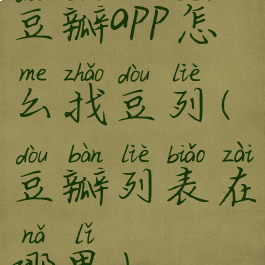 豆瓣app怎
me zhǎo dòu liè
么找豆列(
dòu bàn liè biǎo zài
豆瓣列表在
nǎ lǐ
哪里)